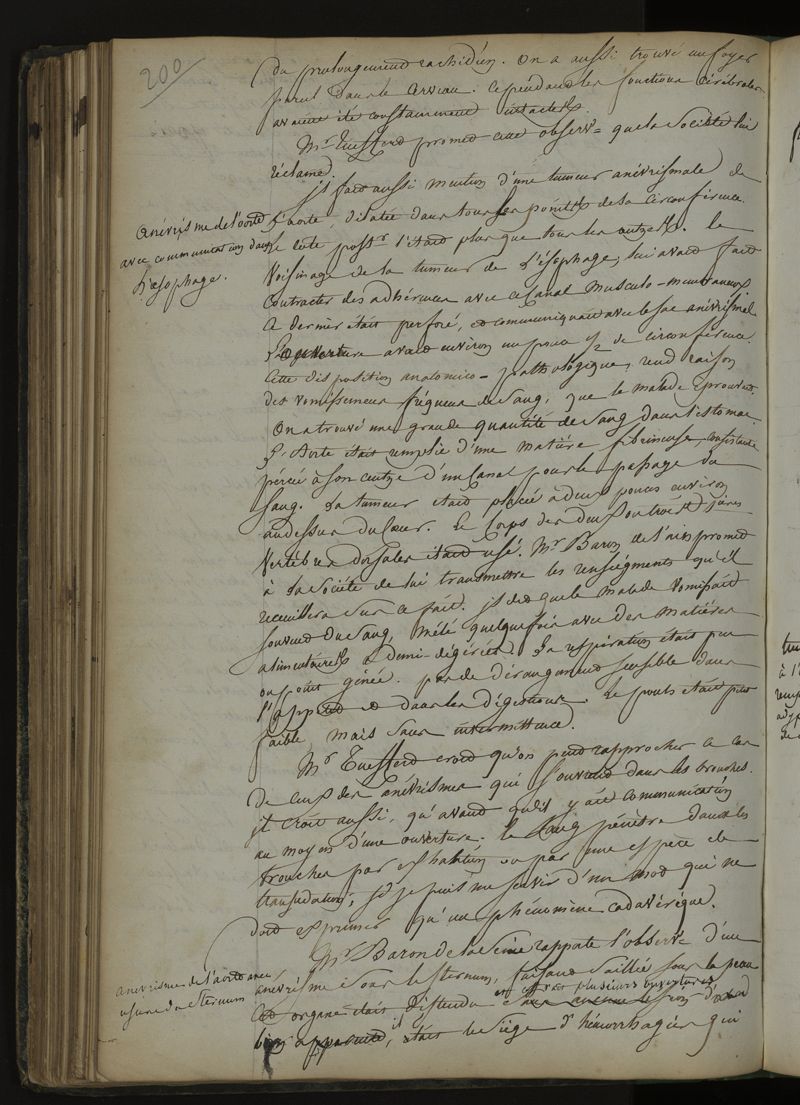 200
du prolongement rachidien. On a aussi trouvé un foyer
pareil dans le cerveau. cependant les fonctions cérébrales
avaient été constamment intactes.
Mr promet cette observ= que la société lui
réclame.
il fait aussi mention d'une tumeur anévrismale de
Anévrisme de l'aorte
avec communication dans
l'œsophage.
l'aorte, dilatée dans tous les points de sa circonférence.
le côté postr l'était plus que tous les autres. le
voisinage de la tumeur de l'ésophage, lui avait fait
contracter des adhérences avec ce canal musculo-membraneux.
Ce dernier était perforé, et communiquait avec le sac anévrismal
L'ouverture avait environ un pouce 1/2 de circonférence.
Cette disposition anatomico-pathologique, rend raison
des vomissemens fréquens de sang, que le malade éprouvait.
On a trouvé une grande quantité de sang dans l'estomac.
L'Aorte était remplie d'une matière fibrineuse,
percée à son centre d'un canal pour le passage du
sang. La tumeur était placée à deux pouces environ
au dessus du Cœur. Le Corps des deux ou trois
vertèbres dorsales était usé. Mr Baron promet
à la Société de lui transmettre les renseignements qu'il
recueillera sur ce fait. il dit que le malade vomissait
souvent du sang, mêlé quelquefois avec des matières
alimentaires à demi-digérées. La respiration était peu
ou point gênée. pas de dérangement sensible dans
l'appétit et dans les digestions. le pouls était
faible, mais sans intermittence.
Mr croit qu'on peut rapprocher ce cas
de ceux des anévrismes qui s'ouvrent dans les bronches.
il croit aussi, qu'avant qu'il y ait communication
au moyen d'une ouverture, le sang pénètre dans les
bronches par exhalation ou par une espèce de
transudation, si je puis me servir d'un mot qui ne
doit exprimer qu'un phénomène cadavérique.
Mr Baron de la Seine rapporte l'observ= d'un
anevrisme de l'aorte avec
usure du sternum
anévrisme sous le sternum, faisant saillie sous la peau
Cet organe était distendu
offrait plusieurs ouvertures
bien apparente, il était le siège d'hémorrhagies qui